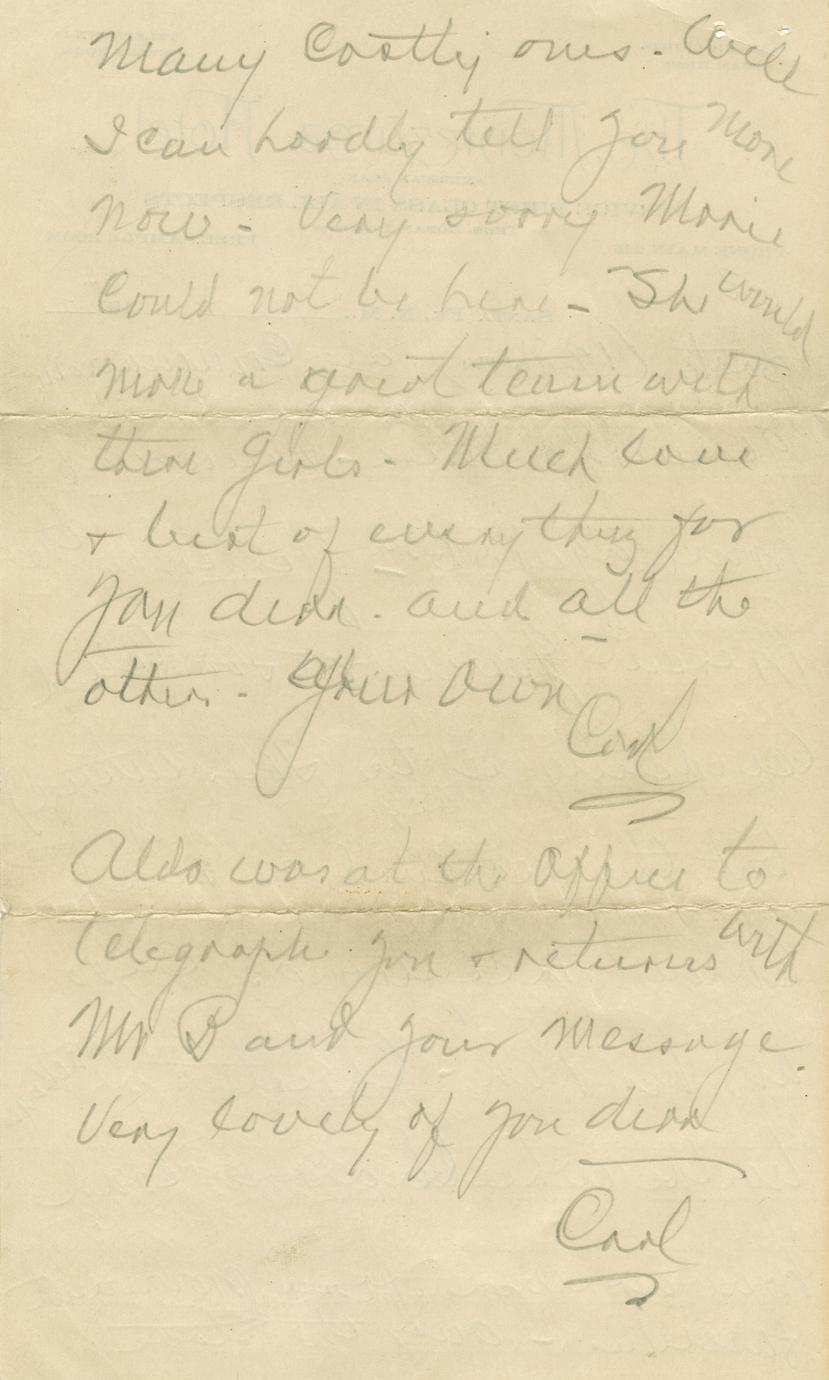 Many Costly ones - Well
I can hardly tell you more
now - Very sorry Marie
Could not be here - She would
make a great team with
these Girls - Much love
& best of everything for
you dear - and all the
others - Your Own
Carl
Aldo was at the office to
telegraph you & returns with
Mr B and your message.
Very lovely of you dear
Carl